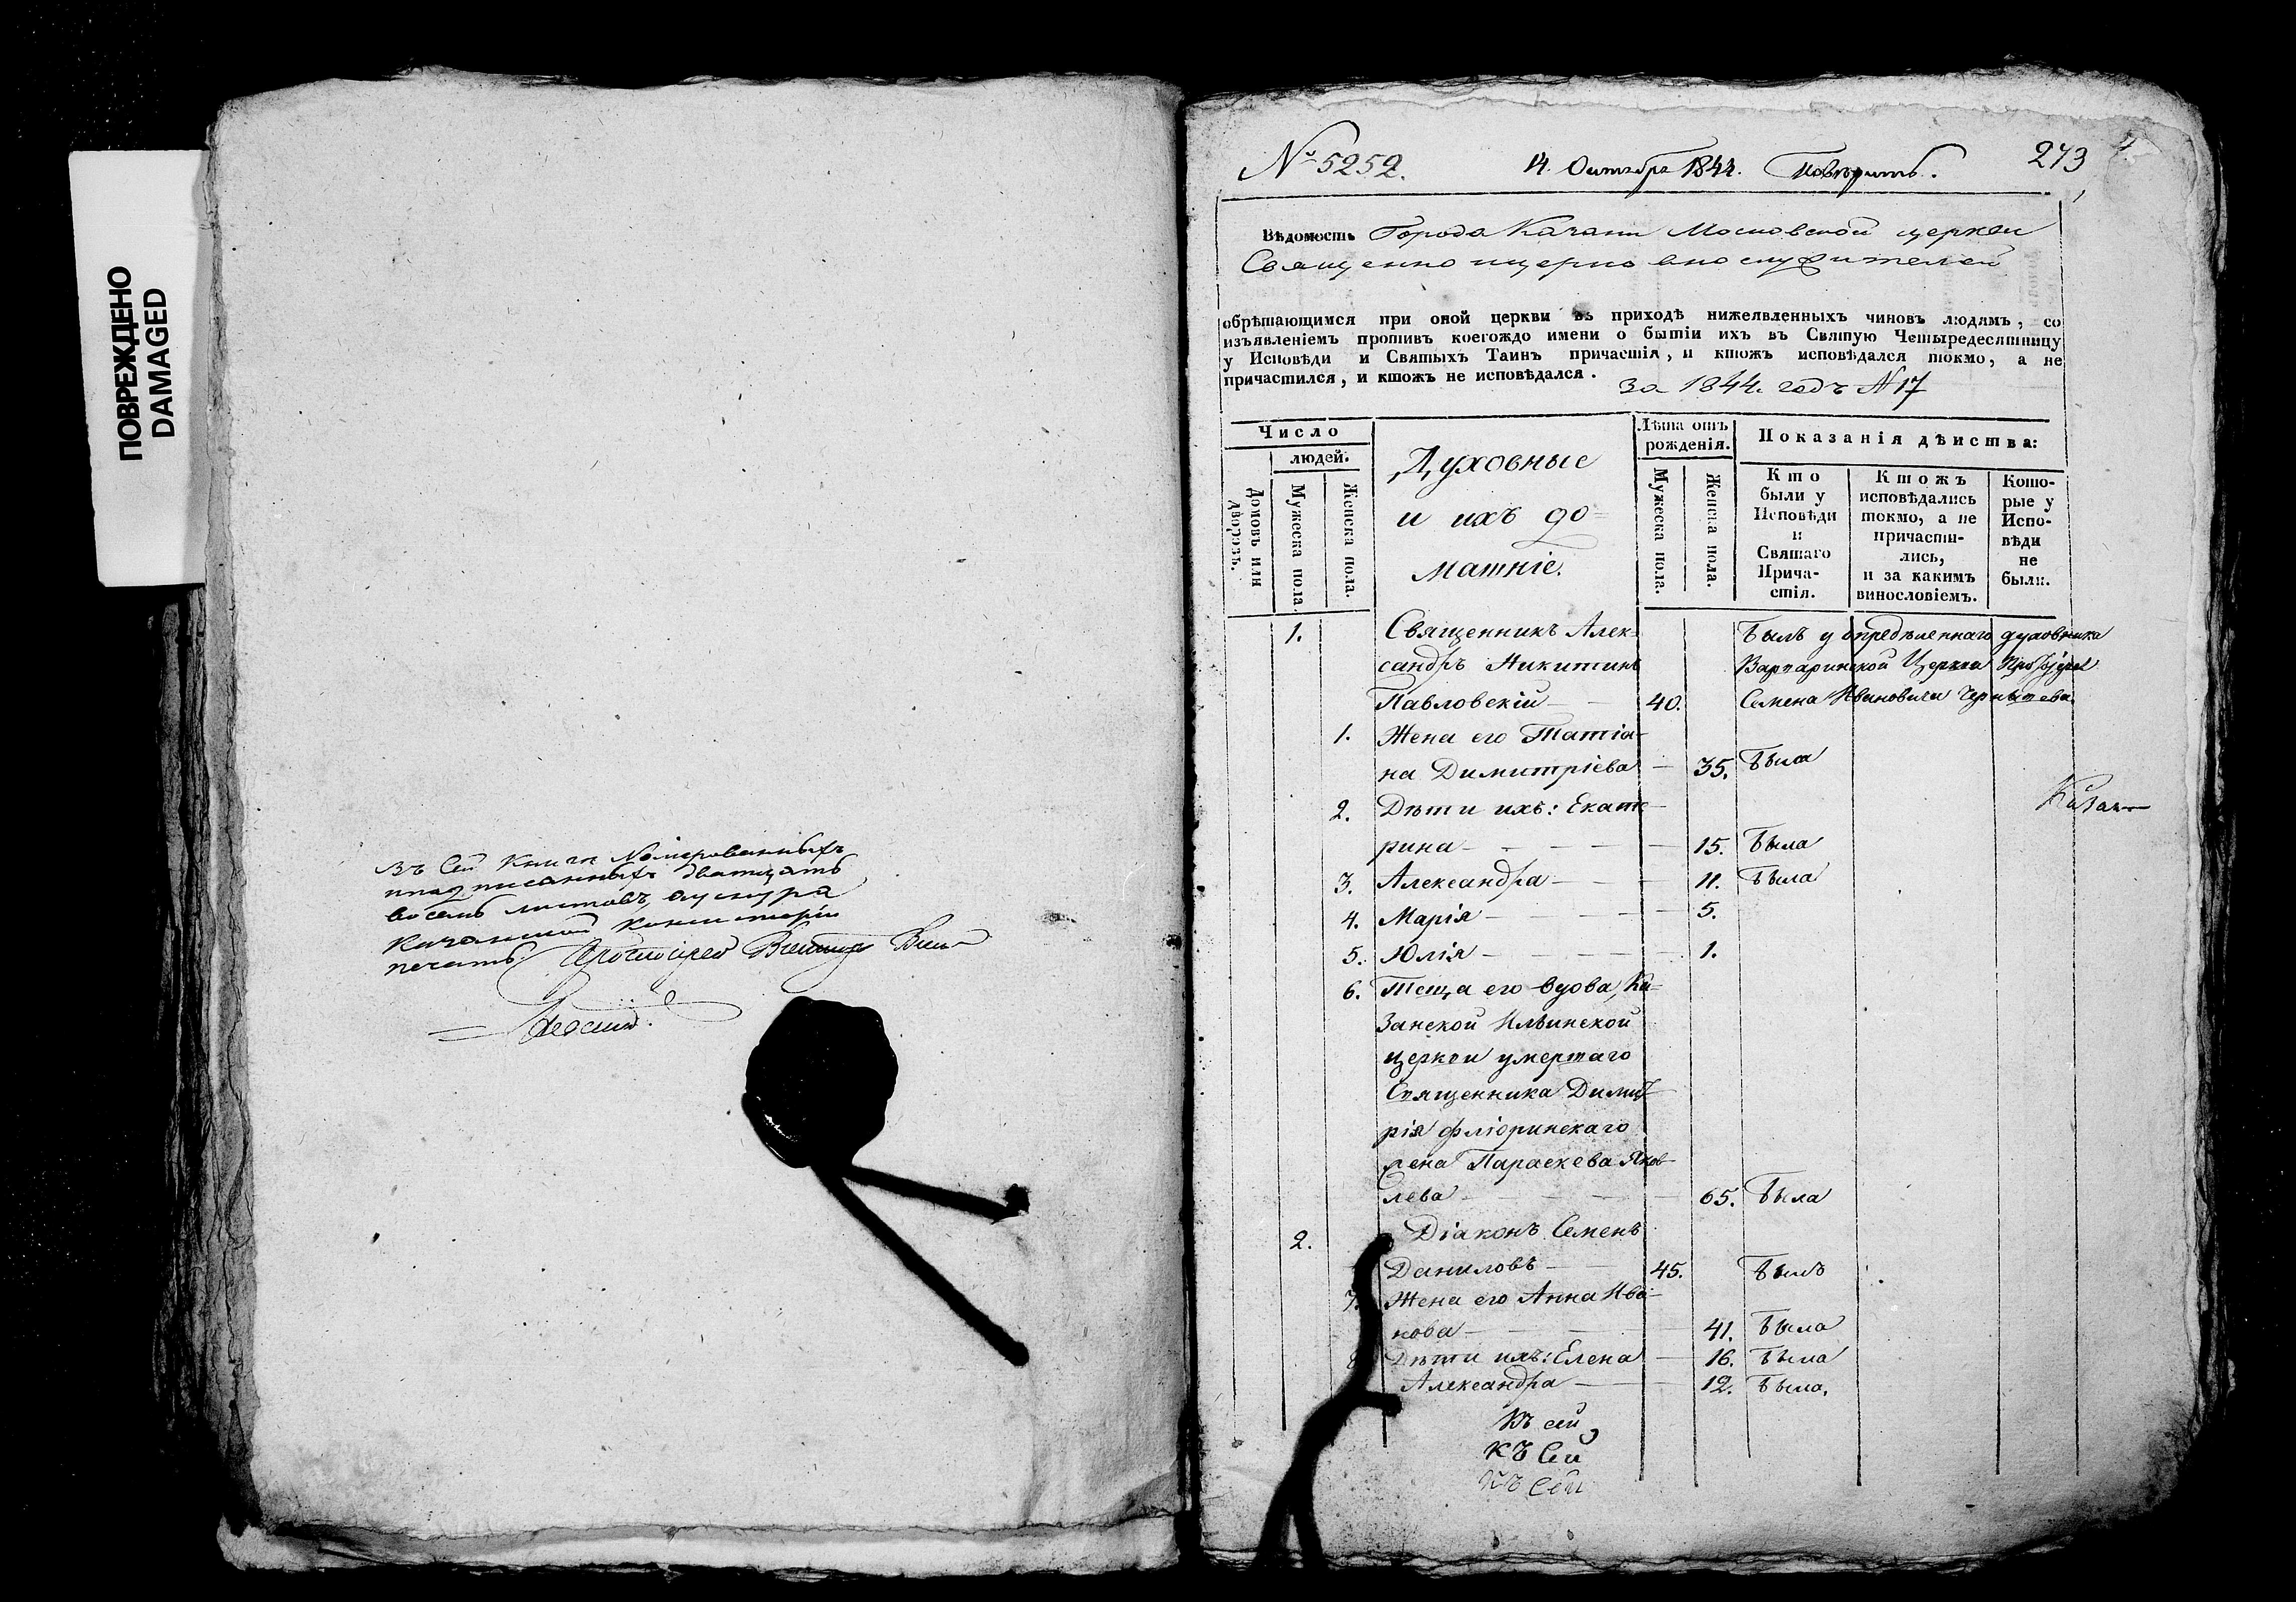 ПОВРЕЖДЕНО
DAMAGED
Въ сей книги номерованныхъ
восемь листовъ,
Казанской консисторіи
печать. Протоіерей
№ 5252. 14. Октября 1844. Повѣрить. 273
Вѣдомость Города Казани Московской церкви
Священно ицерковнослужителей
обрѣтающимся при оной церкви въ приходѣ нижеявленныхъ чиновъ людямъ, со
изъявленіемъ противъ коегождо имени о бытіи ихъ въ Святую Четыредесятницу
у Исповѣди и Святыхъ Таинъ причастія, и ктожъ исповѣдался токмо, а не
причастился, и ктожъ не исповѣдался.
за 1844. годъ N 17
Число
людей.
Домовъ или дворовъ.
Мужеска пола
Женска пола.
Духовные
и ихъ до=
машніе.
Лѣта отъ
рожденія.
Мужеска пола.
Женска пола.
Показанія дѣйства:
Кто
были у
Исповѣди
и
Святаго
Прича-
стія.
Ктожъ
исповѣдались
токмо, а не
причасти-
лись,
и за какимъ
винословіемъ.
Кото-
рые у
Испо-
вѣди
не
были.
1. Священникъ Алек= Былъ у опредѣленнаго духовника
сандръ Никитинъ Варваринской Церкви Протоіерея
Павловскій 40. Семена Ивановича Чернышева
1. Жена его Татіа-
на Димитріева 35. Была
2. Дѣти ихъ: Екате-
рина 15. Была
3. Александра 11. Была
4. Марія 5.
5. Юлія 1.
6. Теща его вдова, Ка=
занской Ильинской
церкви умершаго
Священника Димит-
рія Фліоринскаго
жена Параскева Яков-
лева 65. Была
2. Діаконъ Семенъ
Даниловъ 45. Былъ
7. Жена его Анна Ива-
нова 41. Была
8 Дѣти ихъ: Елена 16. Была
Александра 12. Была.
Къ сей
Къ Сей
Къ Сей
Казан